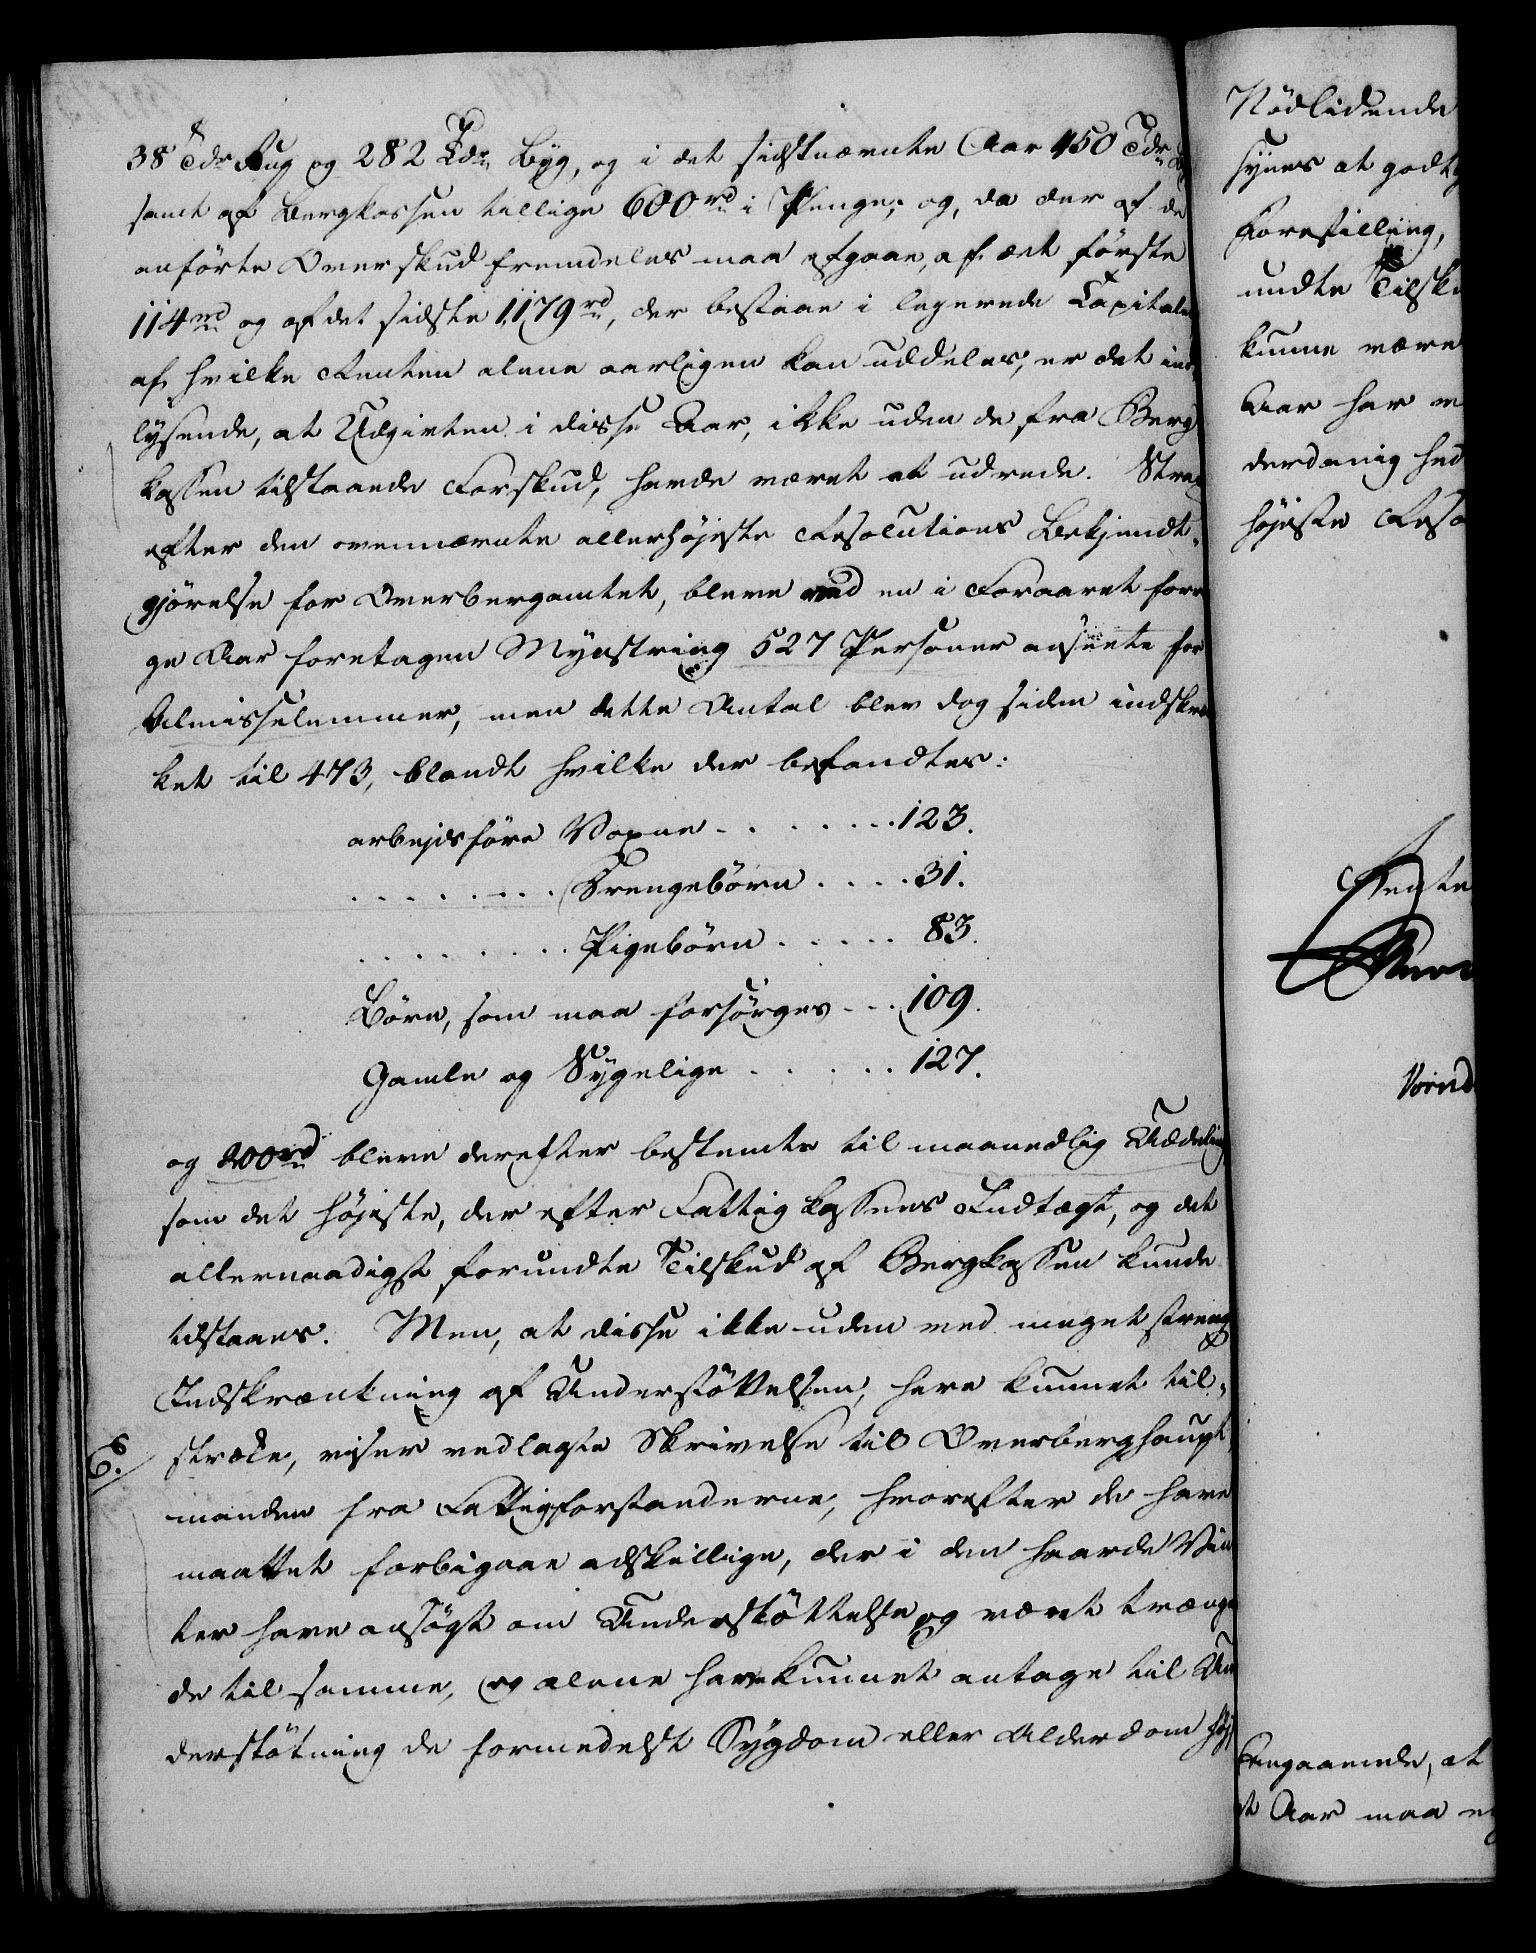 38 Tdr Rug og 282 Tdr Byg, og i det sidstnævnte Aar 450 Tdr
samt af Bergkassen tillige 600 rd i Penge; og, da der af de
anförte Overskud fremdeles maa afgaae, af det förste
114 rd og af det sidste 1179 rd, der bestaae i legerede Capitaler
af hvilke Renten alene aarligen kan uddeles, er det ind-
lysende, at Udgivten i disse Aar, ikke uden de fra Berg
kassen tilstaaede Forskud, havde været at udrede. Strax
efter den ovennævnte allerhöjeste Resolutions Bekjendt-
gjörelse for Overbergamtet, bleve ved en i Foraaret forri
ge Aar foretagen Mynstring 527 Personer ansete for
Almisselemmer, men dette Antal blev dog siden indskræn
ket til 473, blandt hvilke der befandtes:
arbejdsföre Voxne - . . . . . . 123.
. . . . . . . . Drengebörn . . . . 31.
. . . . . . . . Pigebörn . . . . . 83.
Börn, som maa forsörges - . . 109.
Gamle og Sygelige . . . . . . 127.
og 200 rd bleve derefter bestemte til maanedlig Uddeling
som det höjeste, der efter Fattigkassens Indtægt, og det
allernaadigst forundte Tilskud af Bergkassen kunde
tilstaaes. Men, at disse ikke uden med meget streng
Indskrænkning af Understöttelsen, have kunnet til-
6. strække, viser vedlagte Skrivelse til Overberghaupt
manden fra Fattigforstanderne, hvorefter de have
maattet forbigaae adskillige, der i den haarde Vin
ter have ansögt om Understöttelse og været trængen
de til samme, og alene have kunnet antage til Un
derstötning de formedelst Sygdom eller Alderdom höjst
Nödlidende
synes at godtg
Forestilling,
undte Tilsku
kunne være
Aar har m
derdanig hed
höjeste Reso
Rente
angaaende, at
t Aar maa